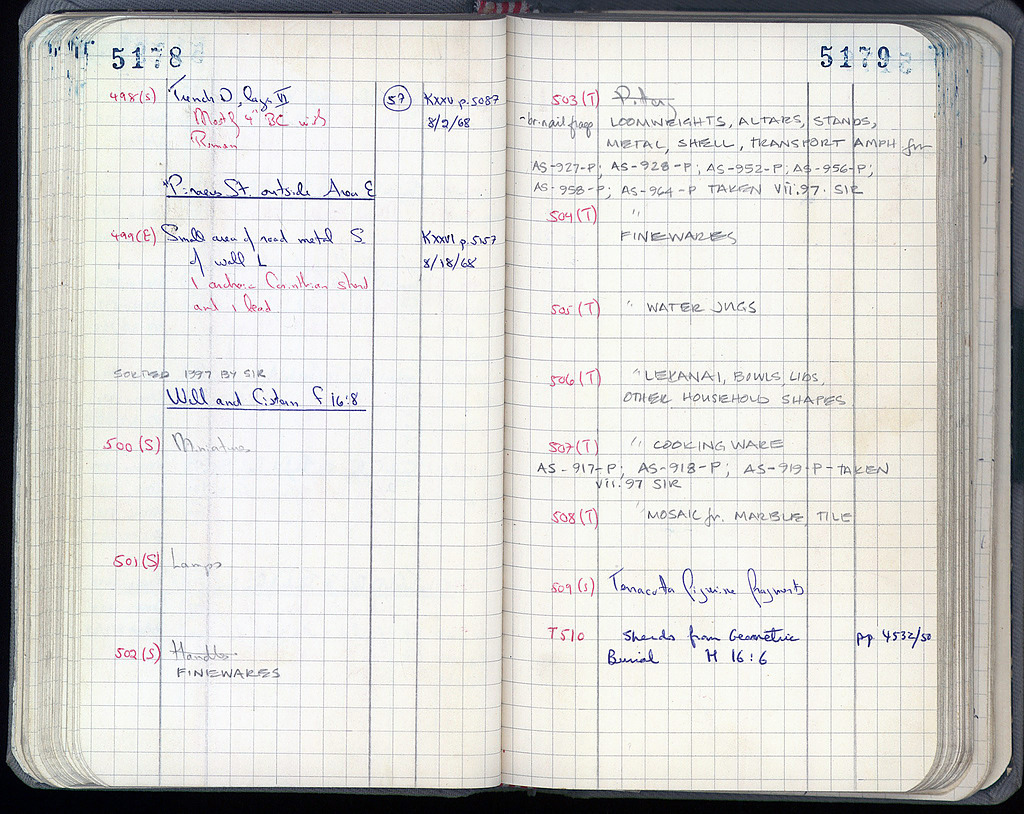 5178
498(S) Trench D, layer VI (57) KXXV p.5087
Mostly 4th BC with 8/2/68
Roman
"Piraeus St. outside Area E
499(E) Small area of road metal S. KXXVI p.5157
of wall L 8/18/68
1 archaic Corinthian sherd
and 1 lead
SORTED 1997 BY SIR
Well and Cistern F 16:8
500(S) Miniatures
501(S) Lamps
502(S) Handles
FINEWARES
5179
503(T) Pottery
-br. nail frags LOOMWEIGHTS, ALTARS, STANDS,
METAL, SHELL, TRANSPORT AMPH fr
AS-927-P; AS-928-P; AS-952-P; AS-956-P;
AS-958-P; AS-964-P TAKEN Vii.97. SIR
504(T) "
FINEWARES
505(T) " WATER JUGS
506(T) " LEKANAI, BOWLS, LIDS,
OTHER HOUSEHOLD SHAPES
507(T) " COOKING WARE
AS-917-P; AS-918-P; AS-919-P-TAKEN
Vii.97 SIR
508(T) " MOSAIC fr. MARBLE TILE
509(S) Terracotta figurine fragments
T510 Sherds from Geometric pp. 4532/50
Burial H 16:6